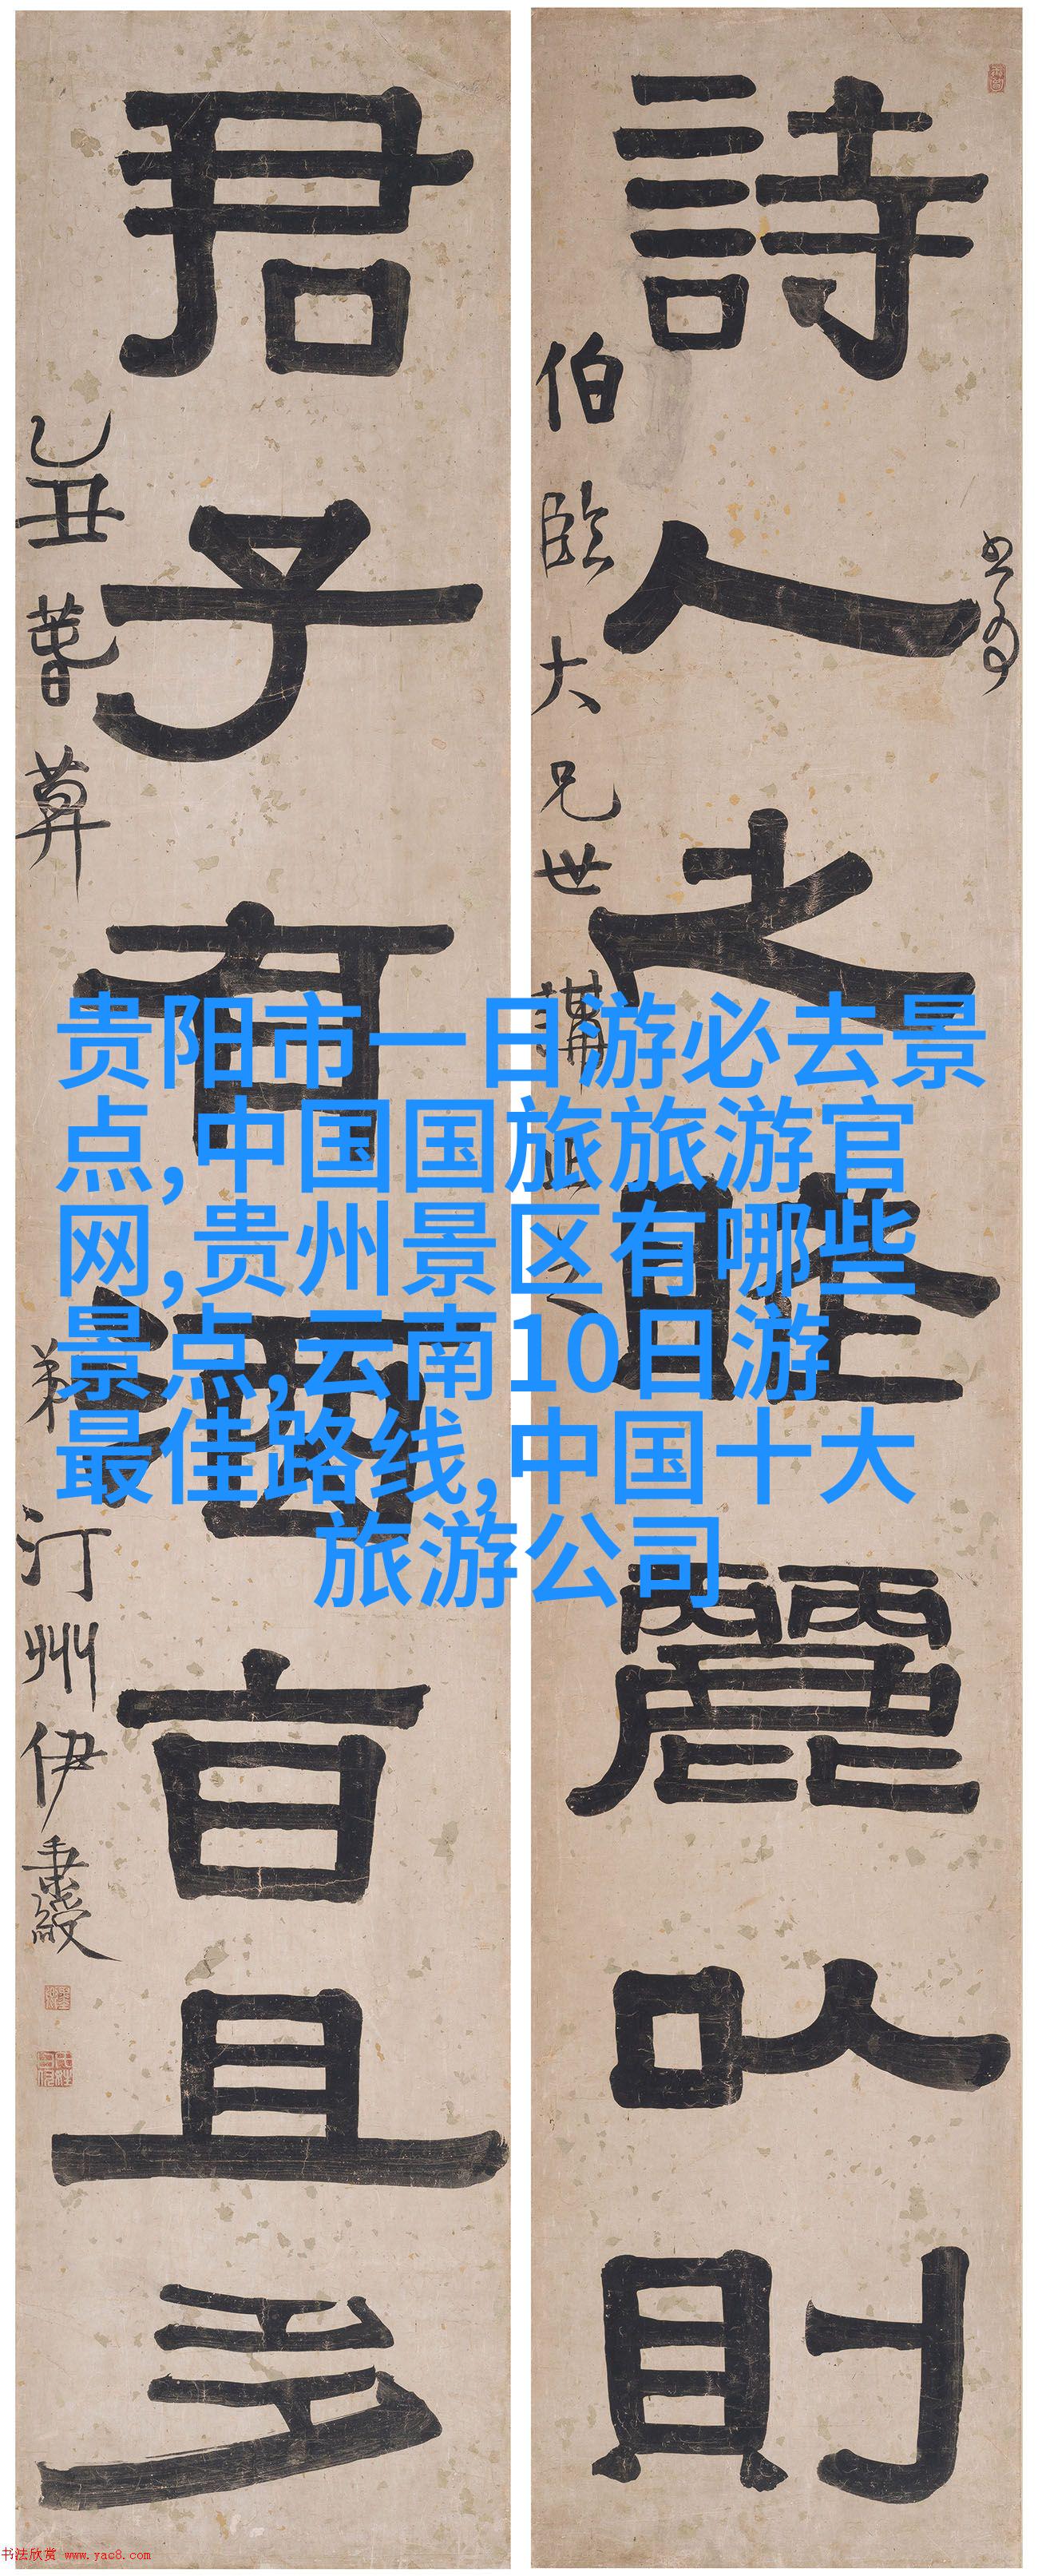 詩人之賦麗以則
伯臨大兄世講正之
君子有酒旨且多
乙丑
弟汀州伊秉綬
贵阳市一日游必去景
点,中国国旅旅游官
网,贵州景区有哪些
景点,云南10日游
最佳路线,中国十大
旅游公司
书法欣赏 www.yac8.com